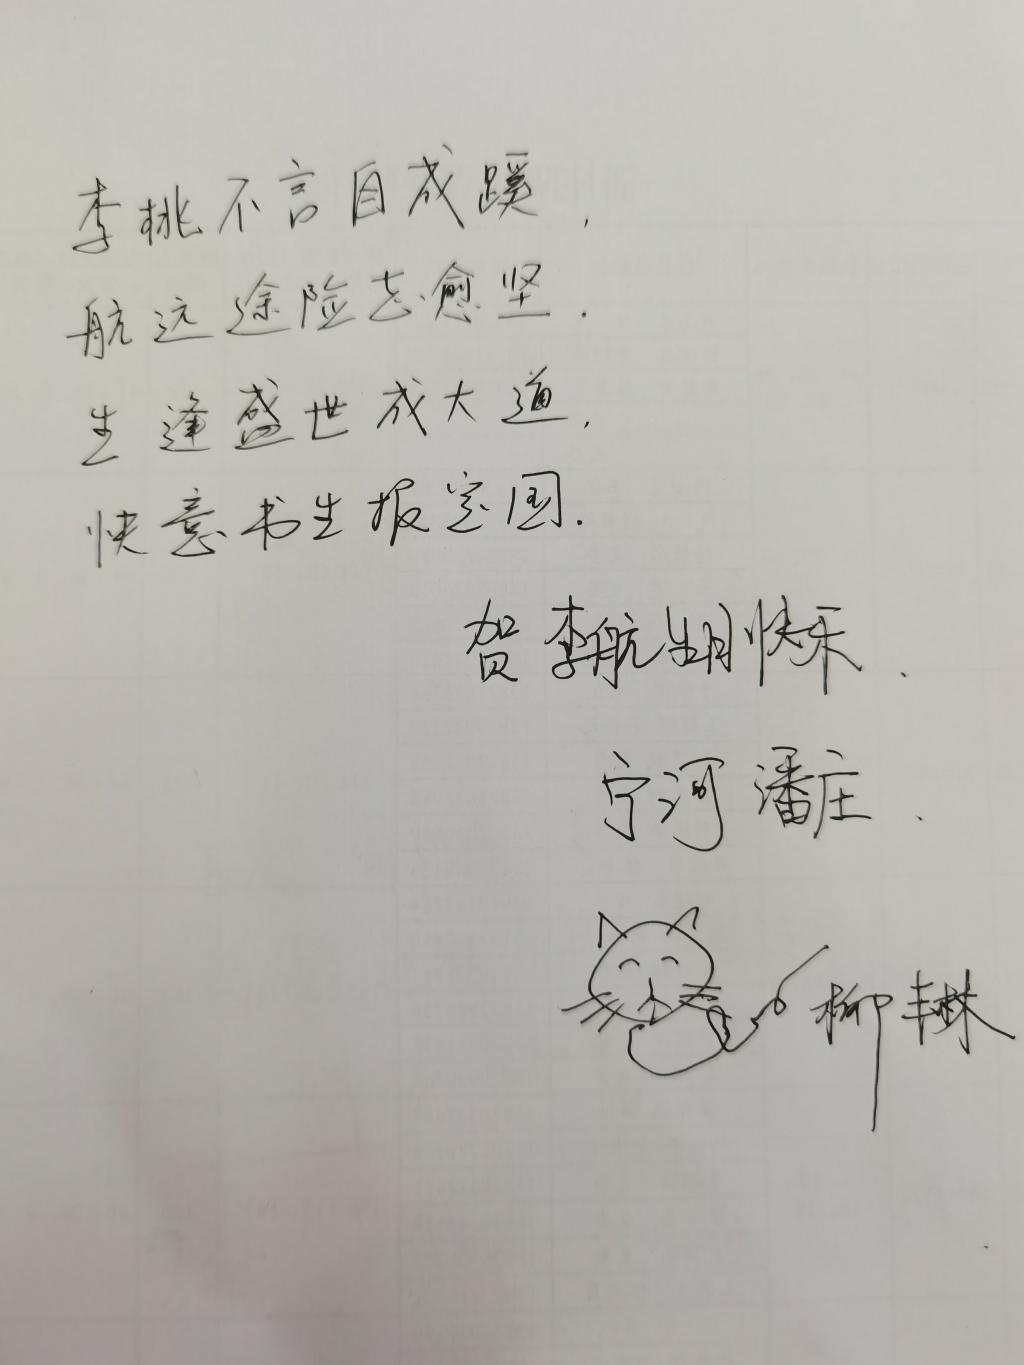 李桃不言自成蹊，
航远途险志愈坚．
生逢盛世成大道，
快意书生报家国．
贺李航生日快乐．
宁河潘庄．
柳丰琳